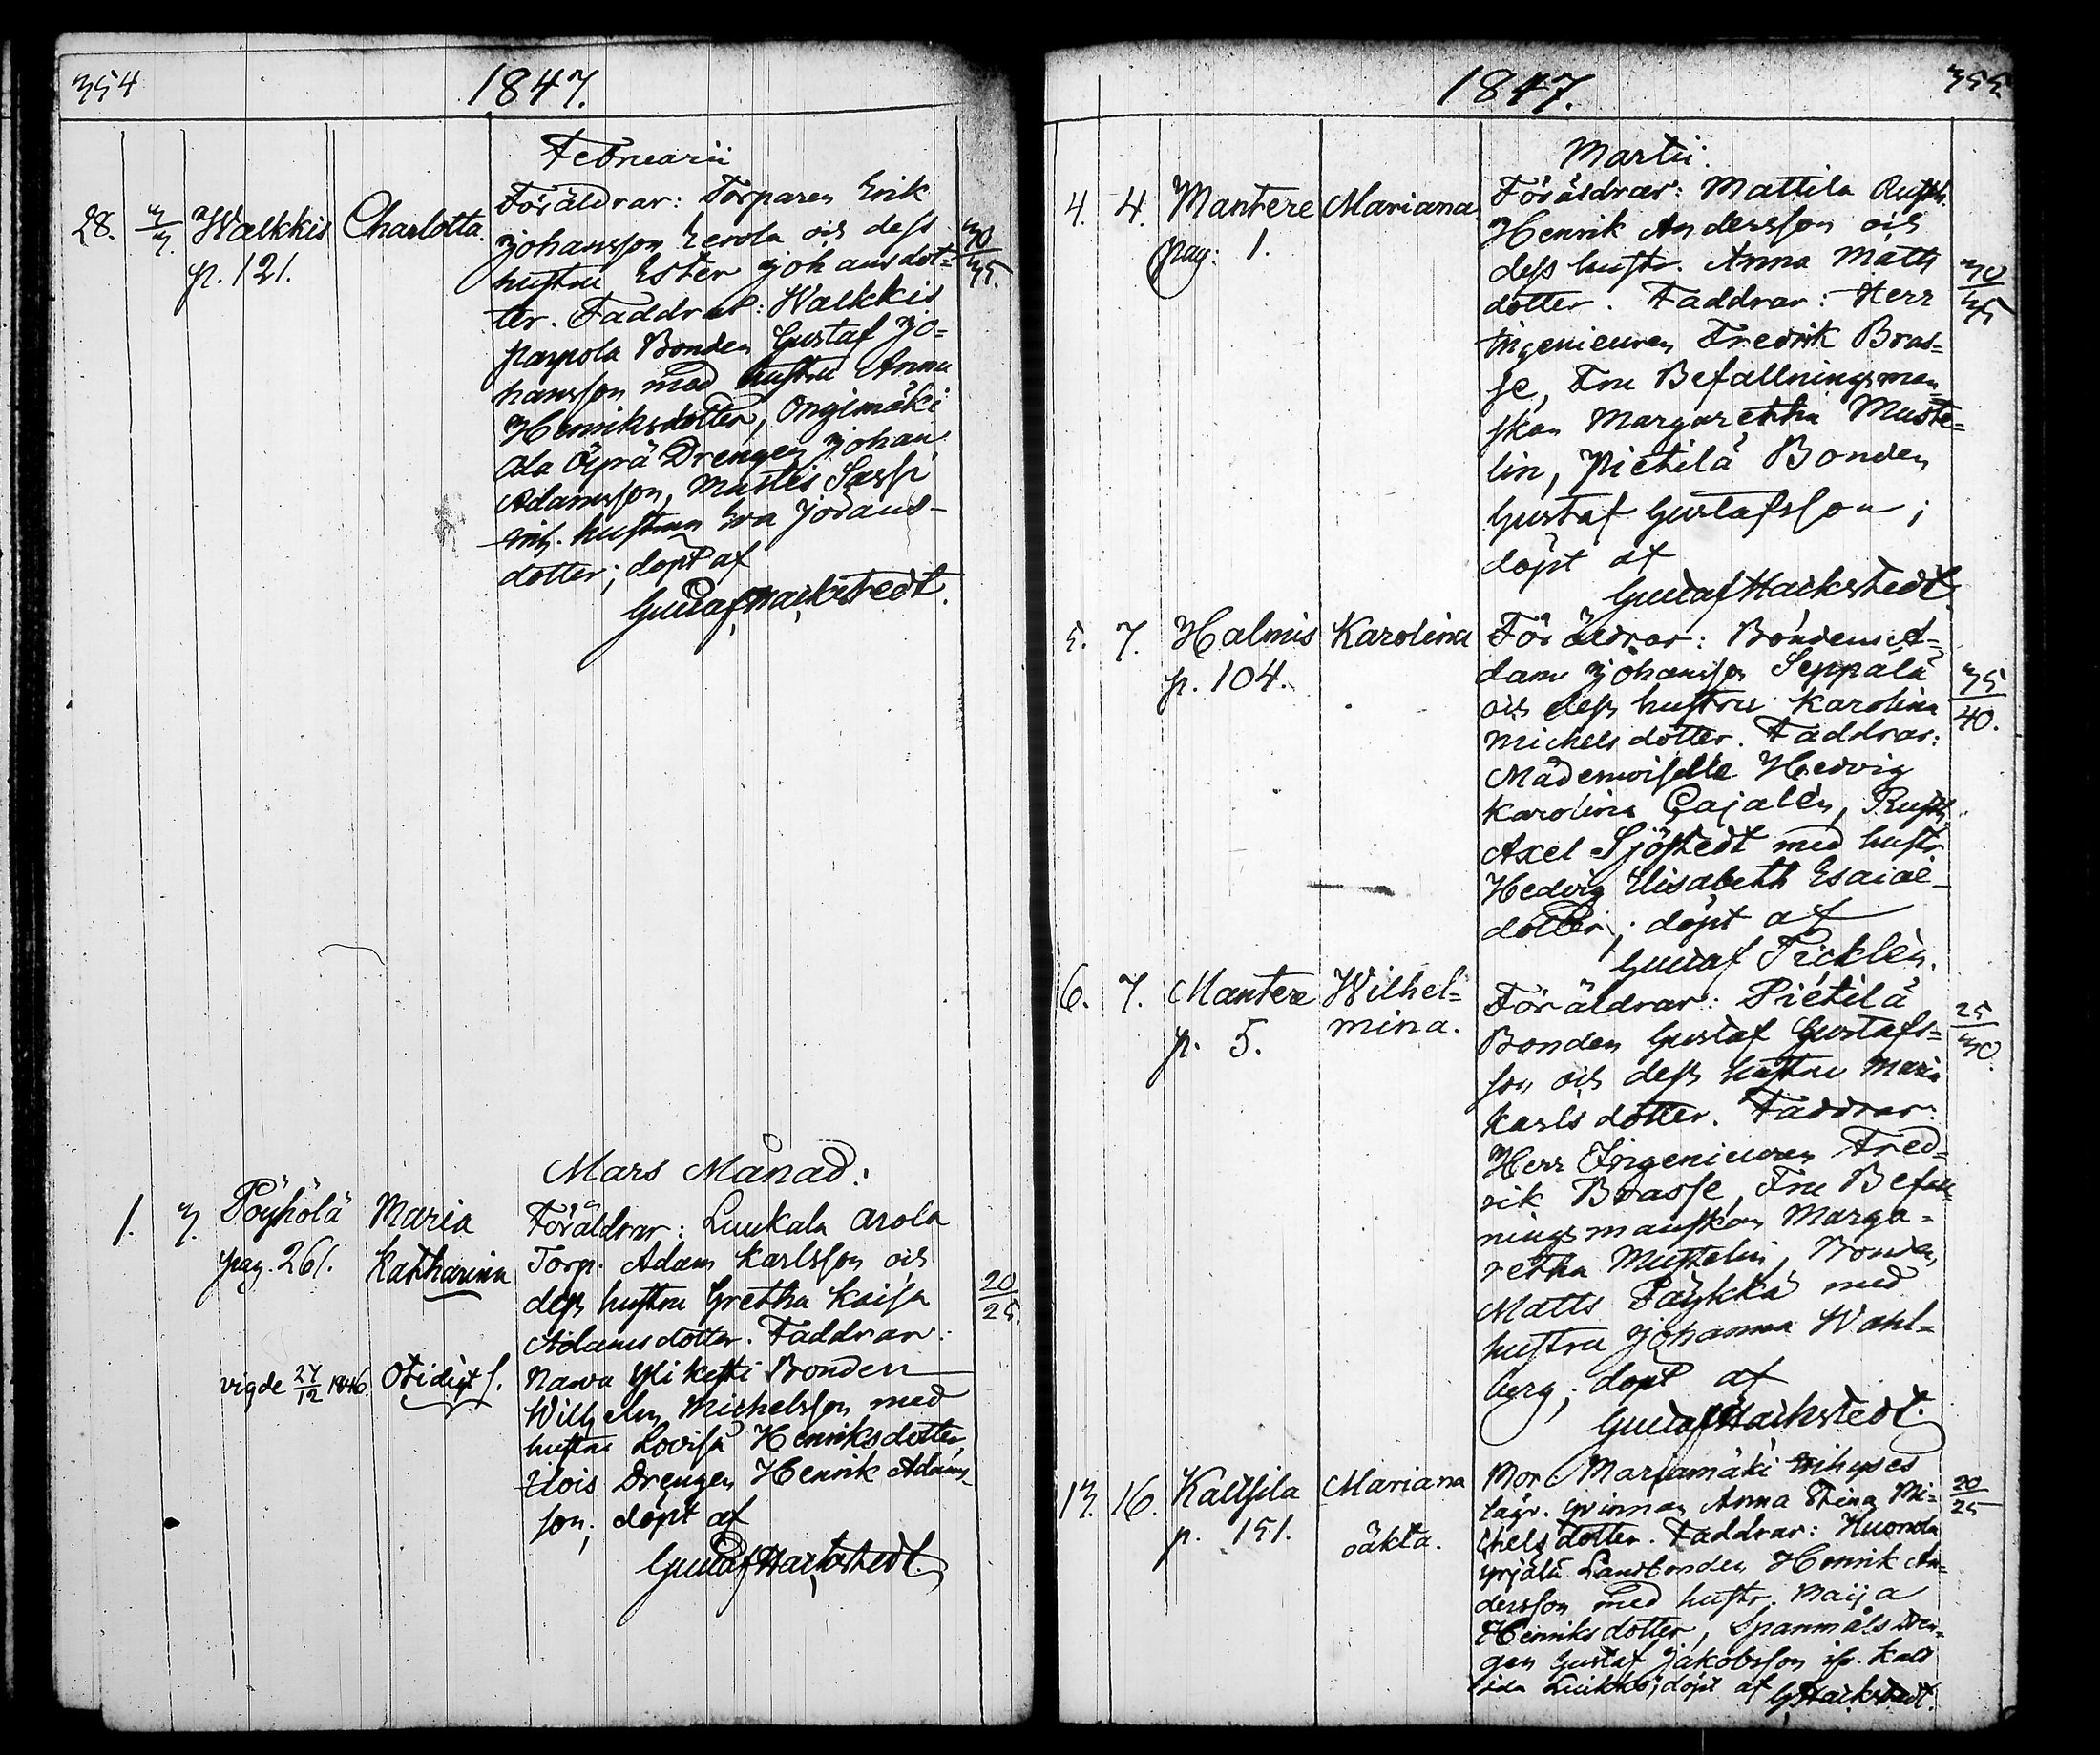 354
1847.
Februarii
28. 3/3. Walkkis Charlotta.
p. 121.
Föräldrar: Torparen Erik
Johansson Eerola och dess
hustru Ester Johansdot=
ter. Faddrar: Walkkis
Parpola Bonden Gustaf Jo=
hansson med hustru Anna
Henriksdotter, Ongimäki
Ala Äyrä Drengen Johan
Adamsson, Mattis Sassi
inh. hustrun Eva Jörans-
dotter; döpt af
Gustaf Hackstedt.
30/35.
Mars Månad:
1. 7. Pöyhölä Maria
pag. 261. Katharina
vigde 27/12 1846. Otidigt f.
Föräldrar: Luukala Arola
Torp. Adam Karlsson och
dess hustru Gretha Kaisa
Adamsdotter. Faddrar:
Nawa Yli Kesti Bonden
Wilhelm Michelsson med
hustru Lovisa Henriksdotter,
Drengen Henrik Adams-
son; döpt af
Gustaf Hackstedt.
20/25.
1847.
355.
Martii.
4. 4. Mantere Mariana
pag: 1.
Föräldrar: Mattila Rusth.
Henrik Andersson och
dess hustr. Anna Matts
dotter. Faddrar: Herr
Ingenieuren Fredrik Bras=
se, Fru Befallningsman
skan Margaretha Muste=
lin, Pietilä Bonden
Gustaf Gustafsson;
döpt af
Gustaf Hackstedt.
30/35
5. 7. Halmis Karolina
p. 104.
Föräldrar: Bonden A=
dam Johansson Seppälä
och dess hustru Karolina
Michelsdotter. Faddrar:
Mademoiselle Hedvig
Karolina Cajalén, Rusth.
Axel Sjöstedt med hustr.
Hedvig Elisabeth Esaiæ-
dotter; döpt af
Gustaf Ticklén.
35/40.
6. 7. Mantere Wilhel=
p. 5. mina.
Föräldrar: Pietilä
Bonden Gustaf Gustafs=
son och dess hustru Maria
Karlsdotter. Faddrar:
Herr Ingenieuren Fred=
rik Brasse, Fru Befall
ningsmanskan Marga=
retha Mustelin, Bonden
Matts Päykkä med
hustru Johanna Wahl=
berg; döpt af
Gustaf Hackstedt.
25/30.
13. 16. Kallsila Mariana
p. 151. oäkta.
Mor Marjamäki inhyses
lägr. qvinnan Anna Stina Mi=
chelsdotter. Faddrar: Huonola
Yrjälä Landbonden Henrik An=
dersson med hustr. Maija
Henriksdotter, Spanmåls Dren=
gen Gustaf Jakobsson
döpt af G. Hackstedt.
20/25